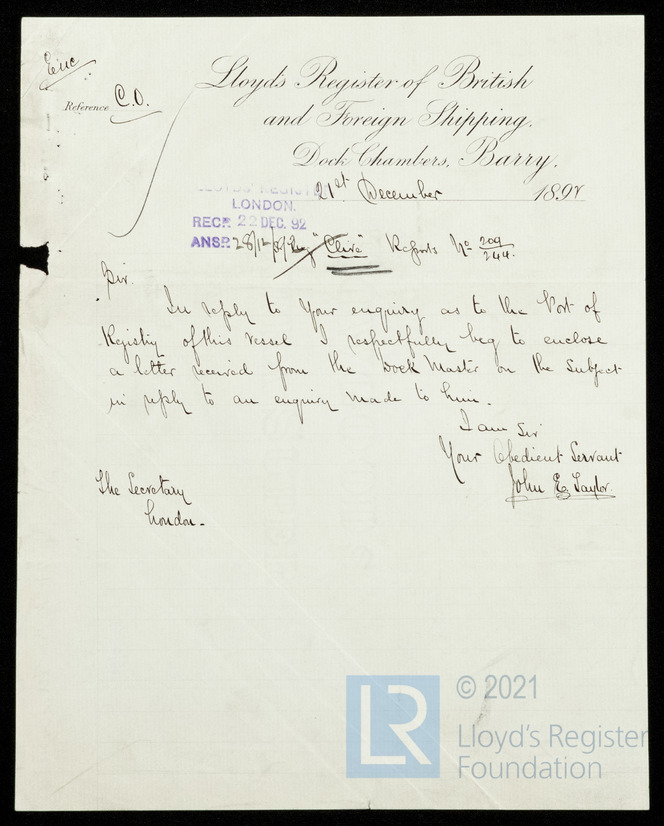 Enc
Reference C.O.
Lloyds Register of British
and Foreign Shipping.
Dock Chambers, Barry,
21st December 1892
LLOYD'S REGISTER
LONDON.
RECD. 22 DEC. 92
ANSD. 28/12/92
"Clive" Reports No 209/244.
Sir.
In reply to your enquiry as to the Port of
Registry of this vessel I respectfully beg to enclose
a letter received from the Dock Master on the Subject
in reply to an enquiry made to him.
I am Sir
Your Obedient Servant
John E. Taylor
The Secretary
London.
LR
© 2021
Lloyd's Register
Foundation